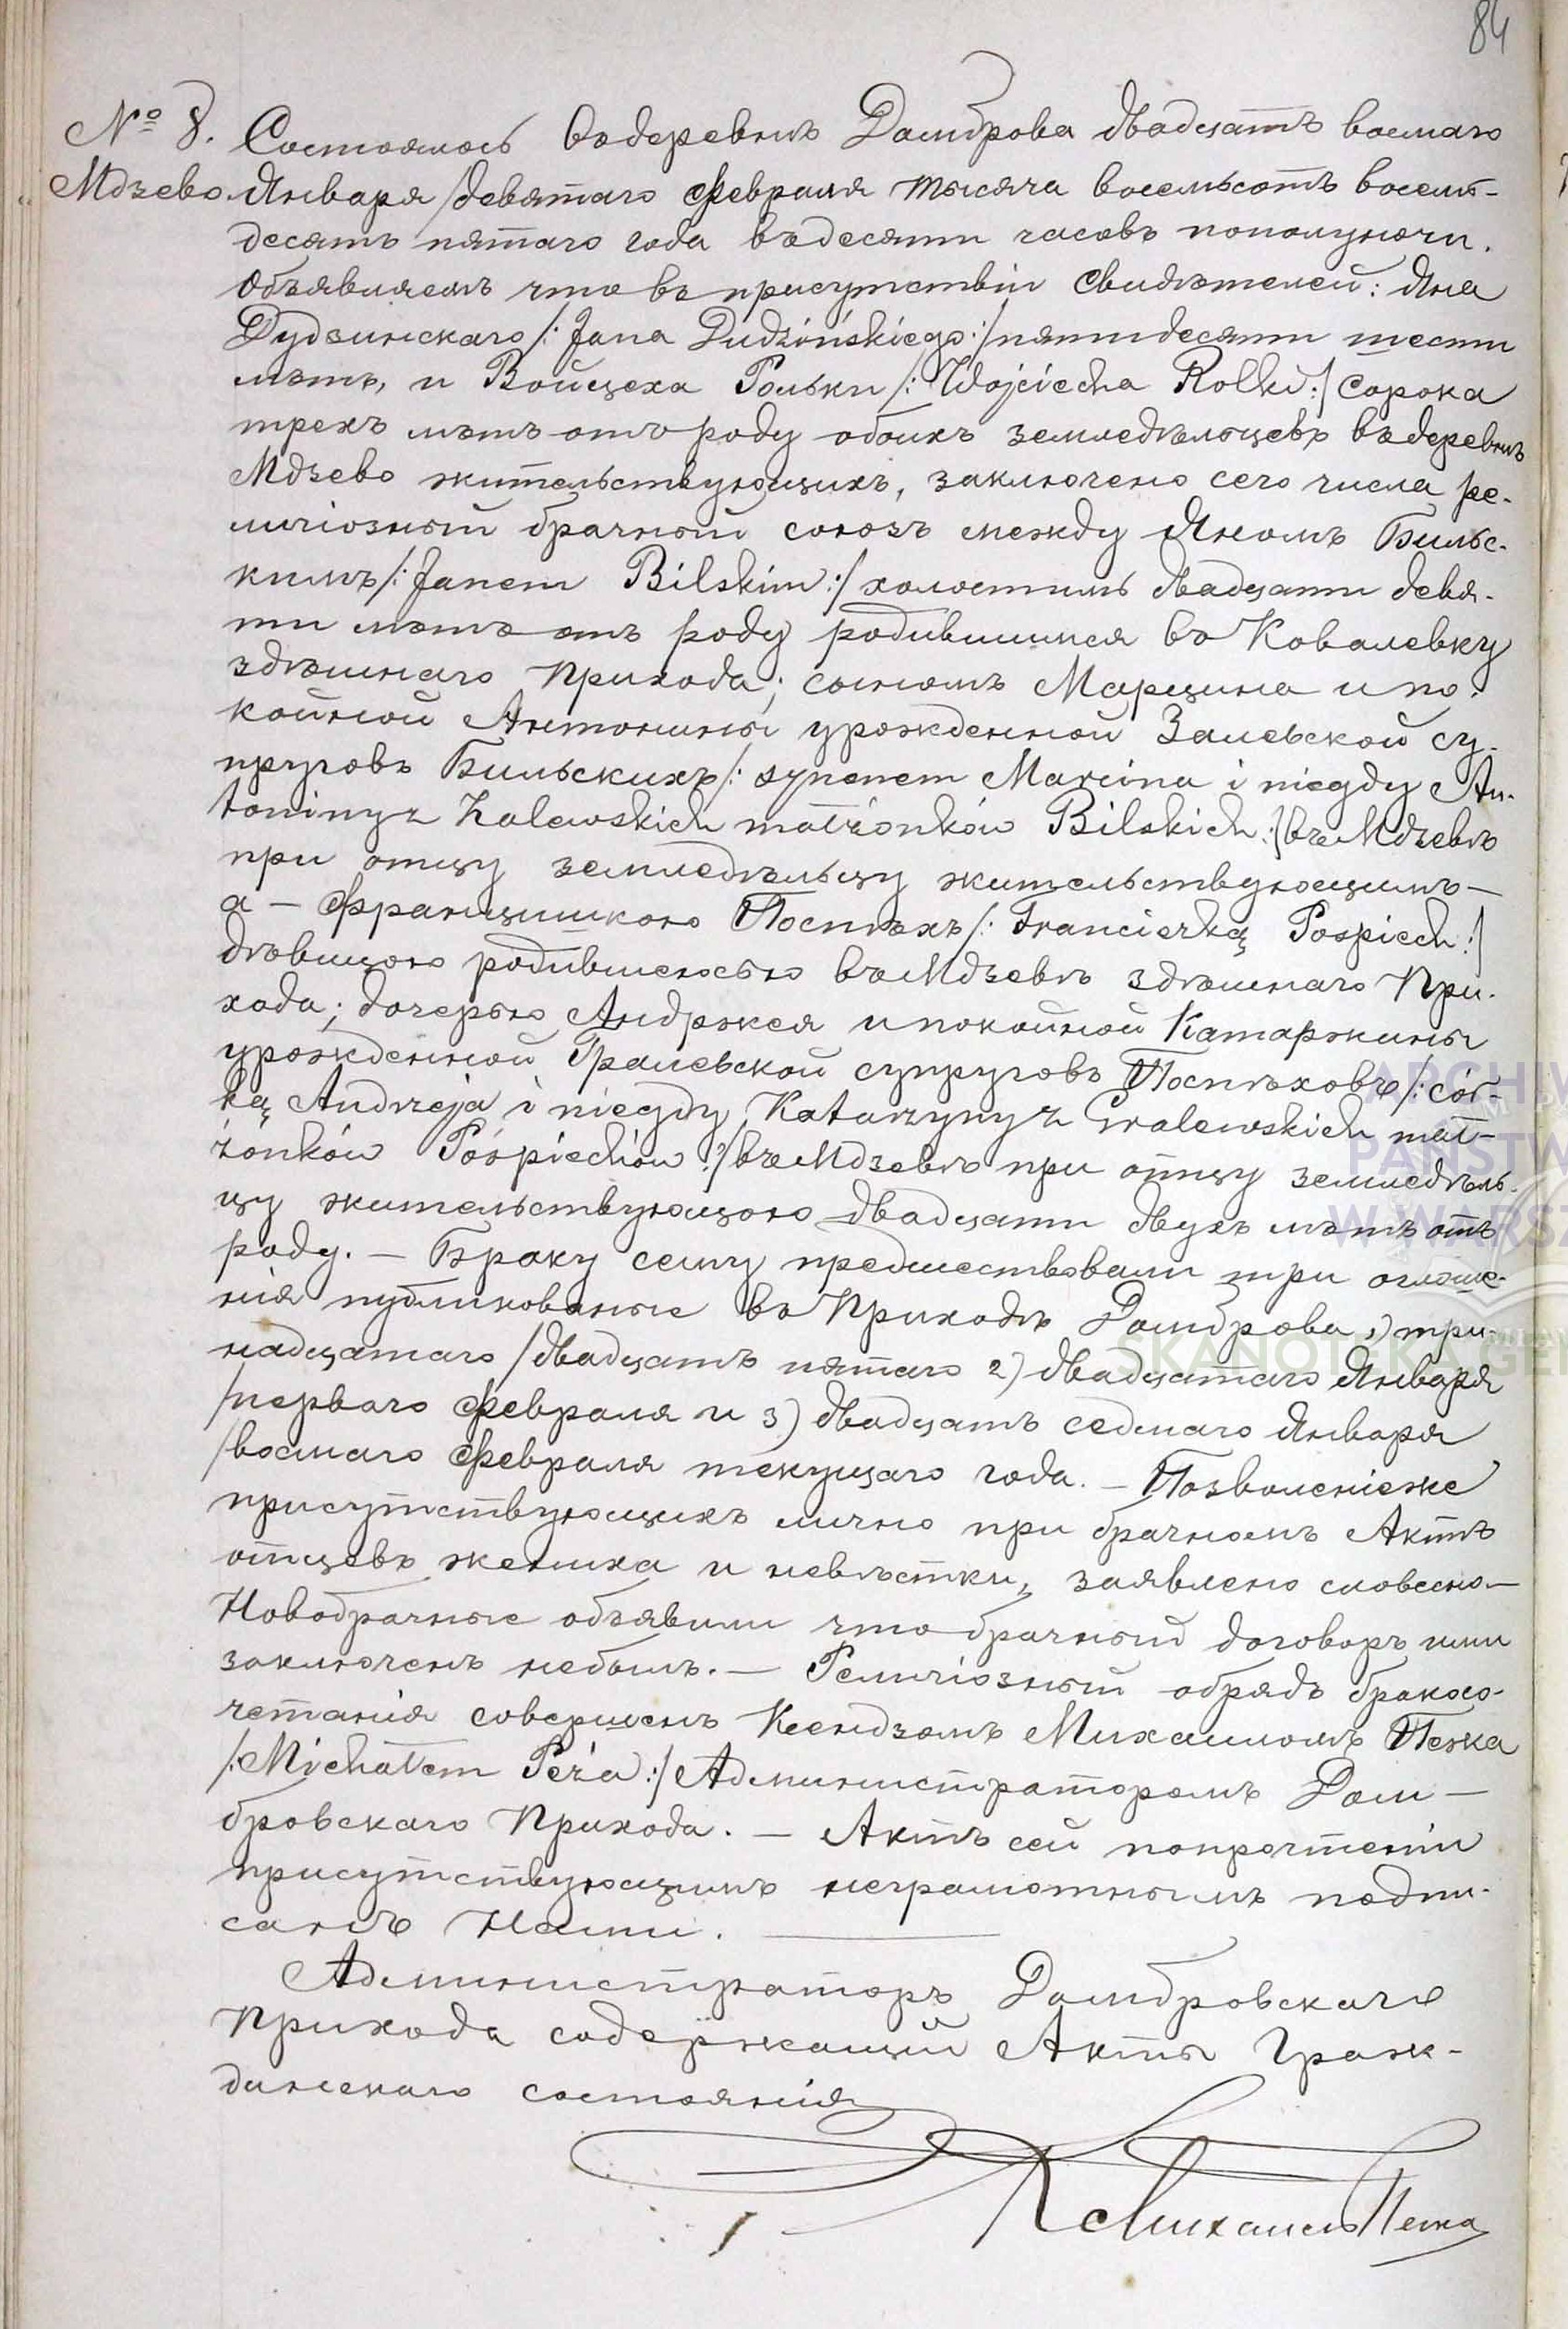 84
№ 8. Состоялось въдеревнѣ Домброва двадцать восмаго
Мдзево. Января /девятаго Февраля тысяча восемьсотъ восемь-
десятъ пятаго года въдесяти часовъ пополуночи.
Объявляемъ что въ присутствіи свидѣтелей: Яна
Дудзинскаго /: Jana Dudzińskiego :/ пятидесяти шести
лѣтъ, и Войцеха Рольки /: Wojciecha Rolki :/ сорока
трехъ лѣтъ отъ роду обоихъ земледѣльцевъ въдеревнѣ
Мдзево жительствующихъ, заключено сего числа ре-
лигіозный брачный союзъ между Яномъ Бильс-
кимъ /: Janem Bilskim :/ холостимъ двадцати девя-
ти лѣтъ отъ роду родившимся въ Ковалевку
здѣшнаго прихода; сыномъ Марцина и по-
койной Антонины урожденной Залевской су-
пруговъ Бильскихъ /: synem Marcina i niegdy An-
toniny z Zalewskich małżonków Bilskich :/ въ Мдзевѣ
при отцу земледѣльцу жительствующимъ —
а — Францишкою Поспѣхъ /: Franciszką Pospiech :/
дѣвицою родившеюсью въ Мдзевѣ здѣшнаго При-
хода; дочерью Андржея и покойной Катаржины
урожденной Гралевской супруговъ Поспѣховъ /: cór-
ką Andrzeja i niegdy Katarzyny z Gralewskich mał-
żonków Pospiechów :/ въ Мдзевѣ при отцу земледѣль-
цу жительствующою двадцати двухъ лѣтъ отъ
роду. — Браку сему предшествовали три оглаше-
нія публикованые въ Приходѣ Домброва 1) три-
надцатаго /двадцать пятаго 2) двадцатаго Января
/перваго Февраля и 3) двадцать седмаго Января
/восмаго Февраля текущаго года. — Позволеніеже
присутствующихъ лично при брачномъ Актѣ
отцевъ жениха и невѣстки, заявлено словесно —
Новобрачные объявили что брачный договоръ ими
заключенъ небылъ. — Религіозный обрядъ бракосо-
четанія совершенъ Ксендзомъ Михаиломъ Пежа
/: Michałem Peża :/ Администраторомъ Дом —
бровскаго Прихода. — Актъ сей попрочтеніи
присутствующимъ неграмотнымъ подпи-
санъ Нами.
Администраторъ Домбровскаго
Прихода содержащій Акты Граж-
данскаго состоянія
К. Михаилъ Пежа